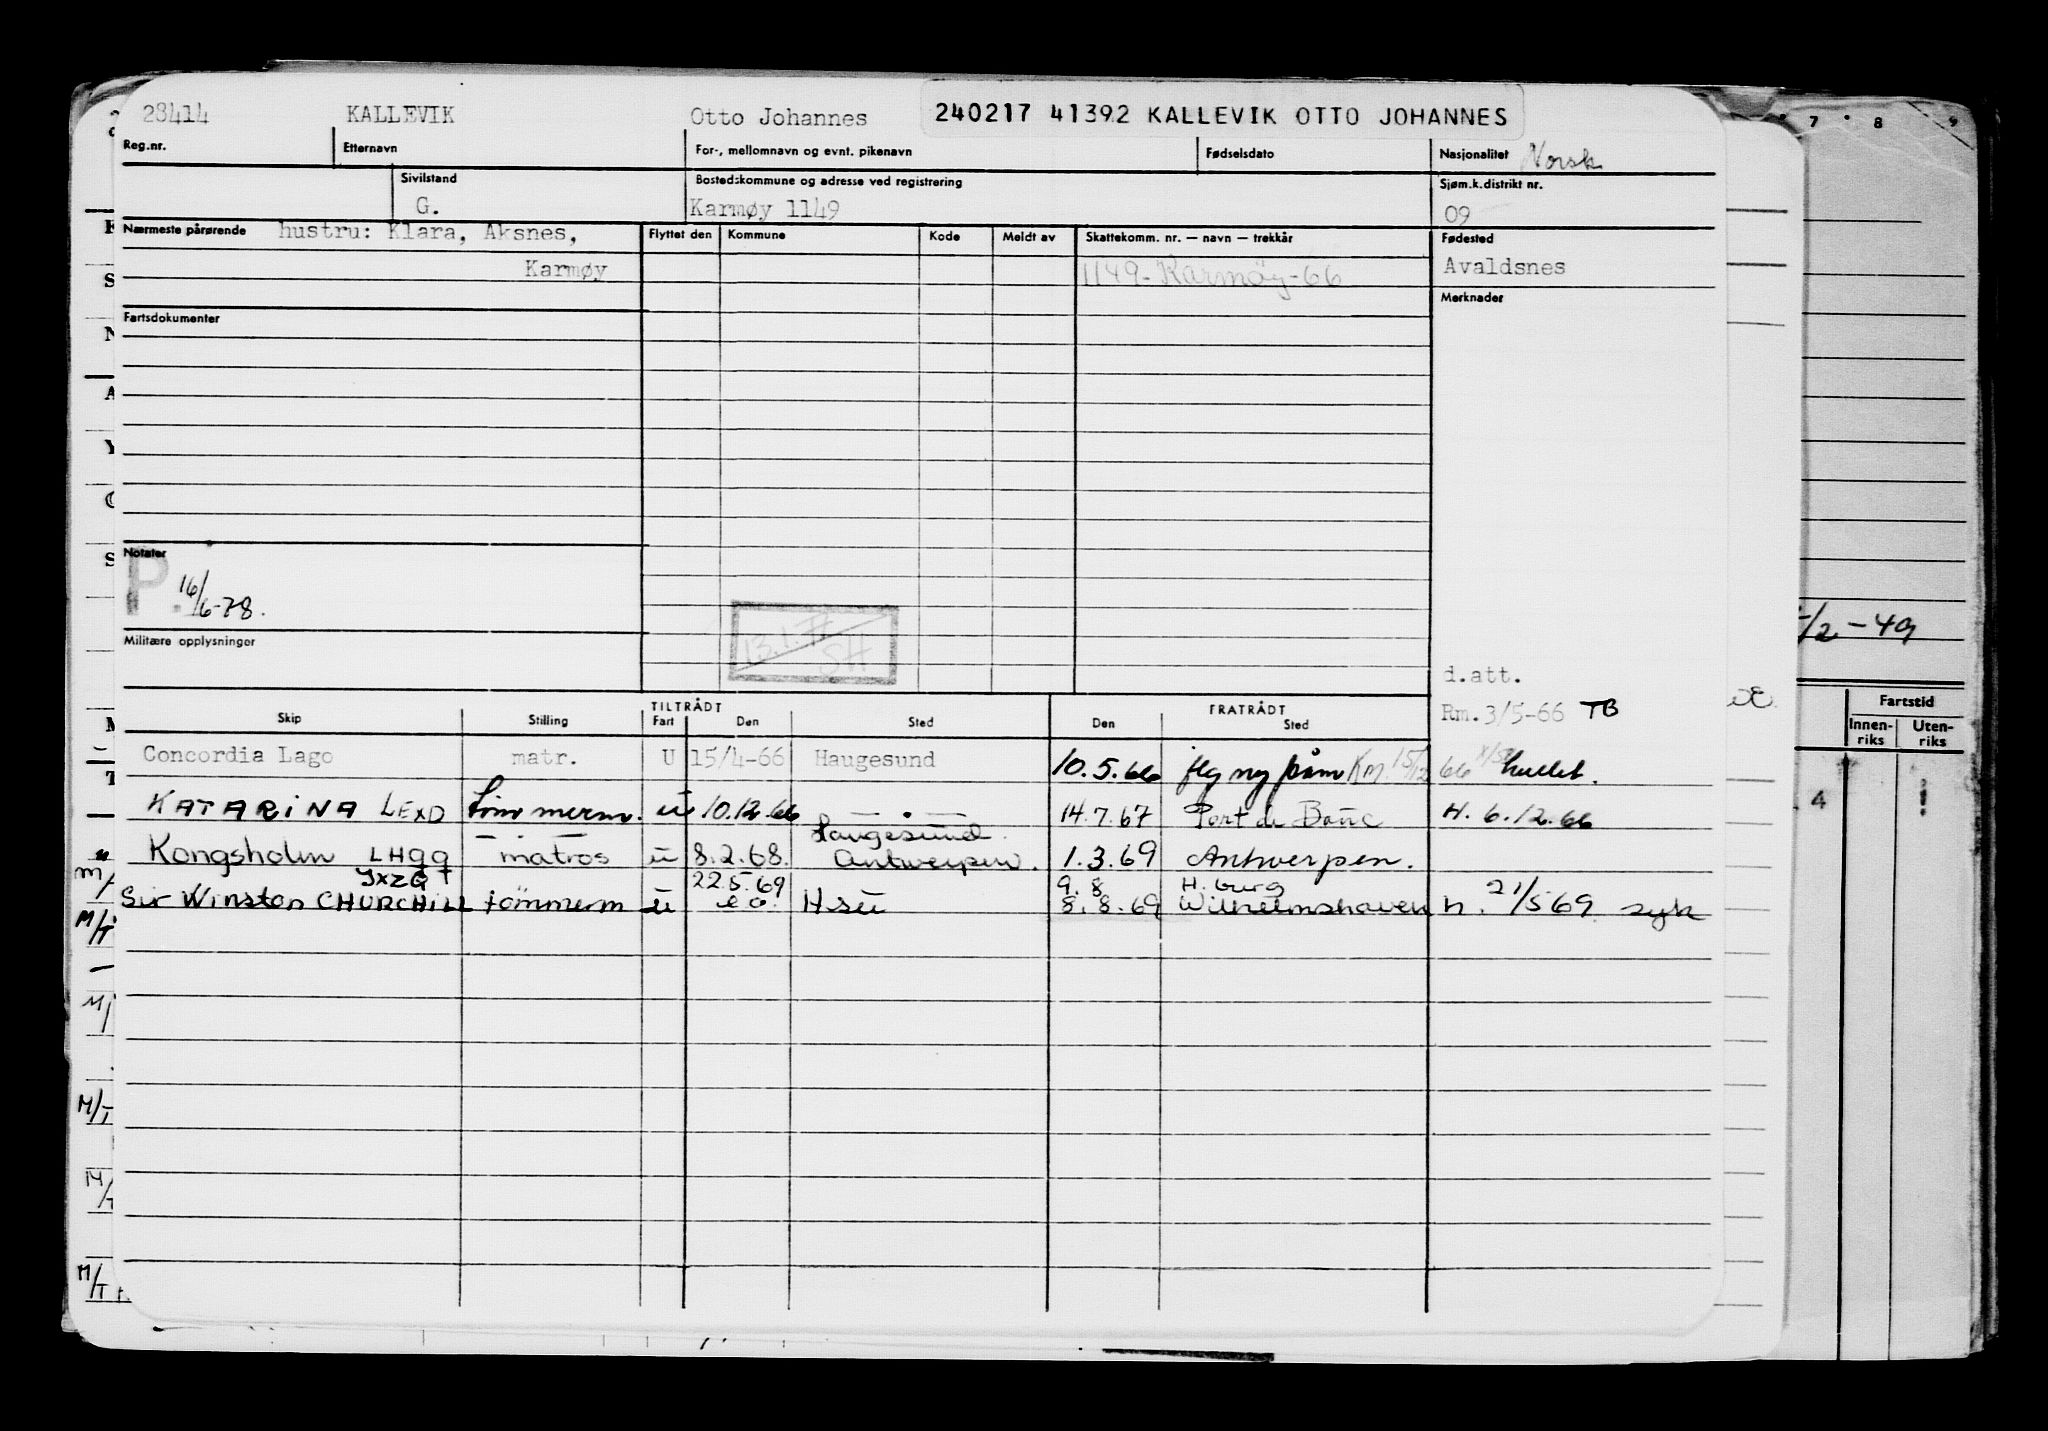 28414 KALLEVIK Otto Johannes 240217 41392 KALLEVIK OTTO JOHANNES
Reg.nr. Etternavn For-, mellomnavn og evnt. pikenavn Fødselsdato Nasjonalitet Norsk
Sivilstand Bostedskommune og adresse ved registrering Sjøm.k.distrikt nr.
G. Karmøy 1149 09
Nærmeste pårørende hustru: Klara, Aksnes, Flyttet den Kommune Kode Meldt av Skattekomm. nr. — navn — trekkår Fødested
Karmøy 1149-Karmöy-66 Avaldsnes
Merknader
Fartsdokumenter
Notater
P. 16/6-78.
13.1.71 SH
Militære opplysninger
d.att.
Rm. 3/5-66 TB
TILTRÅDT FRATRÅDT
Skip Stilling Fart Den Sted Den Sted
Concordia Lago matr. U 15/4-66 Haugesund 10.5.66 Km. 15/12 66
KATARINA LEXD tømmerm. u 10.12.66 Haugesund 14.7.67 Port de Bouc H. 6.12.66
Kongsholm LHqq matros u 8.2.68. Antwerpen. 1.3.69 Antwerpen.
JXZG 22.5.69 9.8 H.burg
Sir Winston CHURCHILL tömmerm u H.su 8.8.69 Wilhelmshaven h. 21/5 69 syk
7 8 9
/2-49
Fartstid
Innen-riks Uten-riks
4
M/T
M/T
M/T
M/T